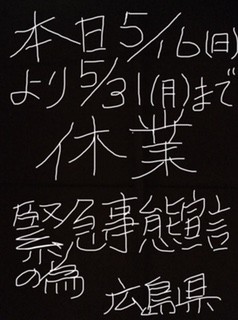 本日5/16(日)
より5/31(月)まで
休業
緊急事態宣言
の為
広島県